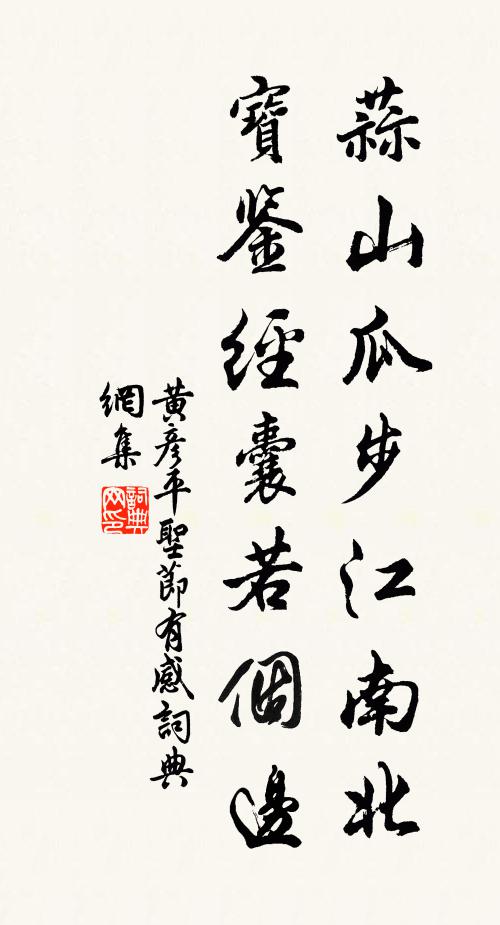 蒜山瓜步江南北
寶鉴經囊若個邊
黃彥平聖節有感詞典
網集
詞典
网印